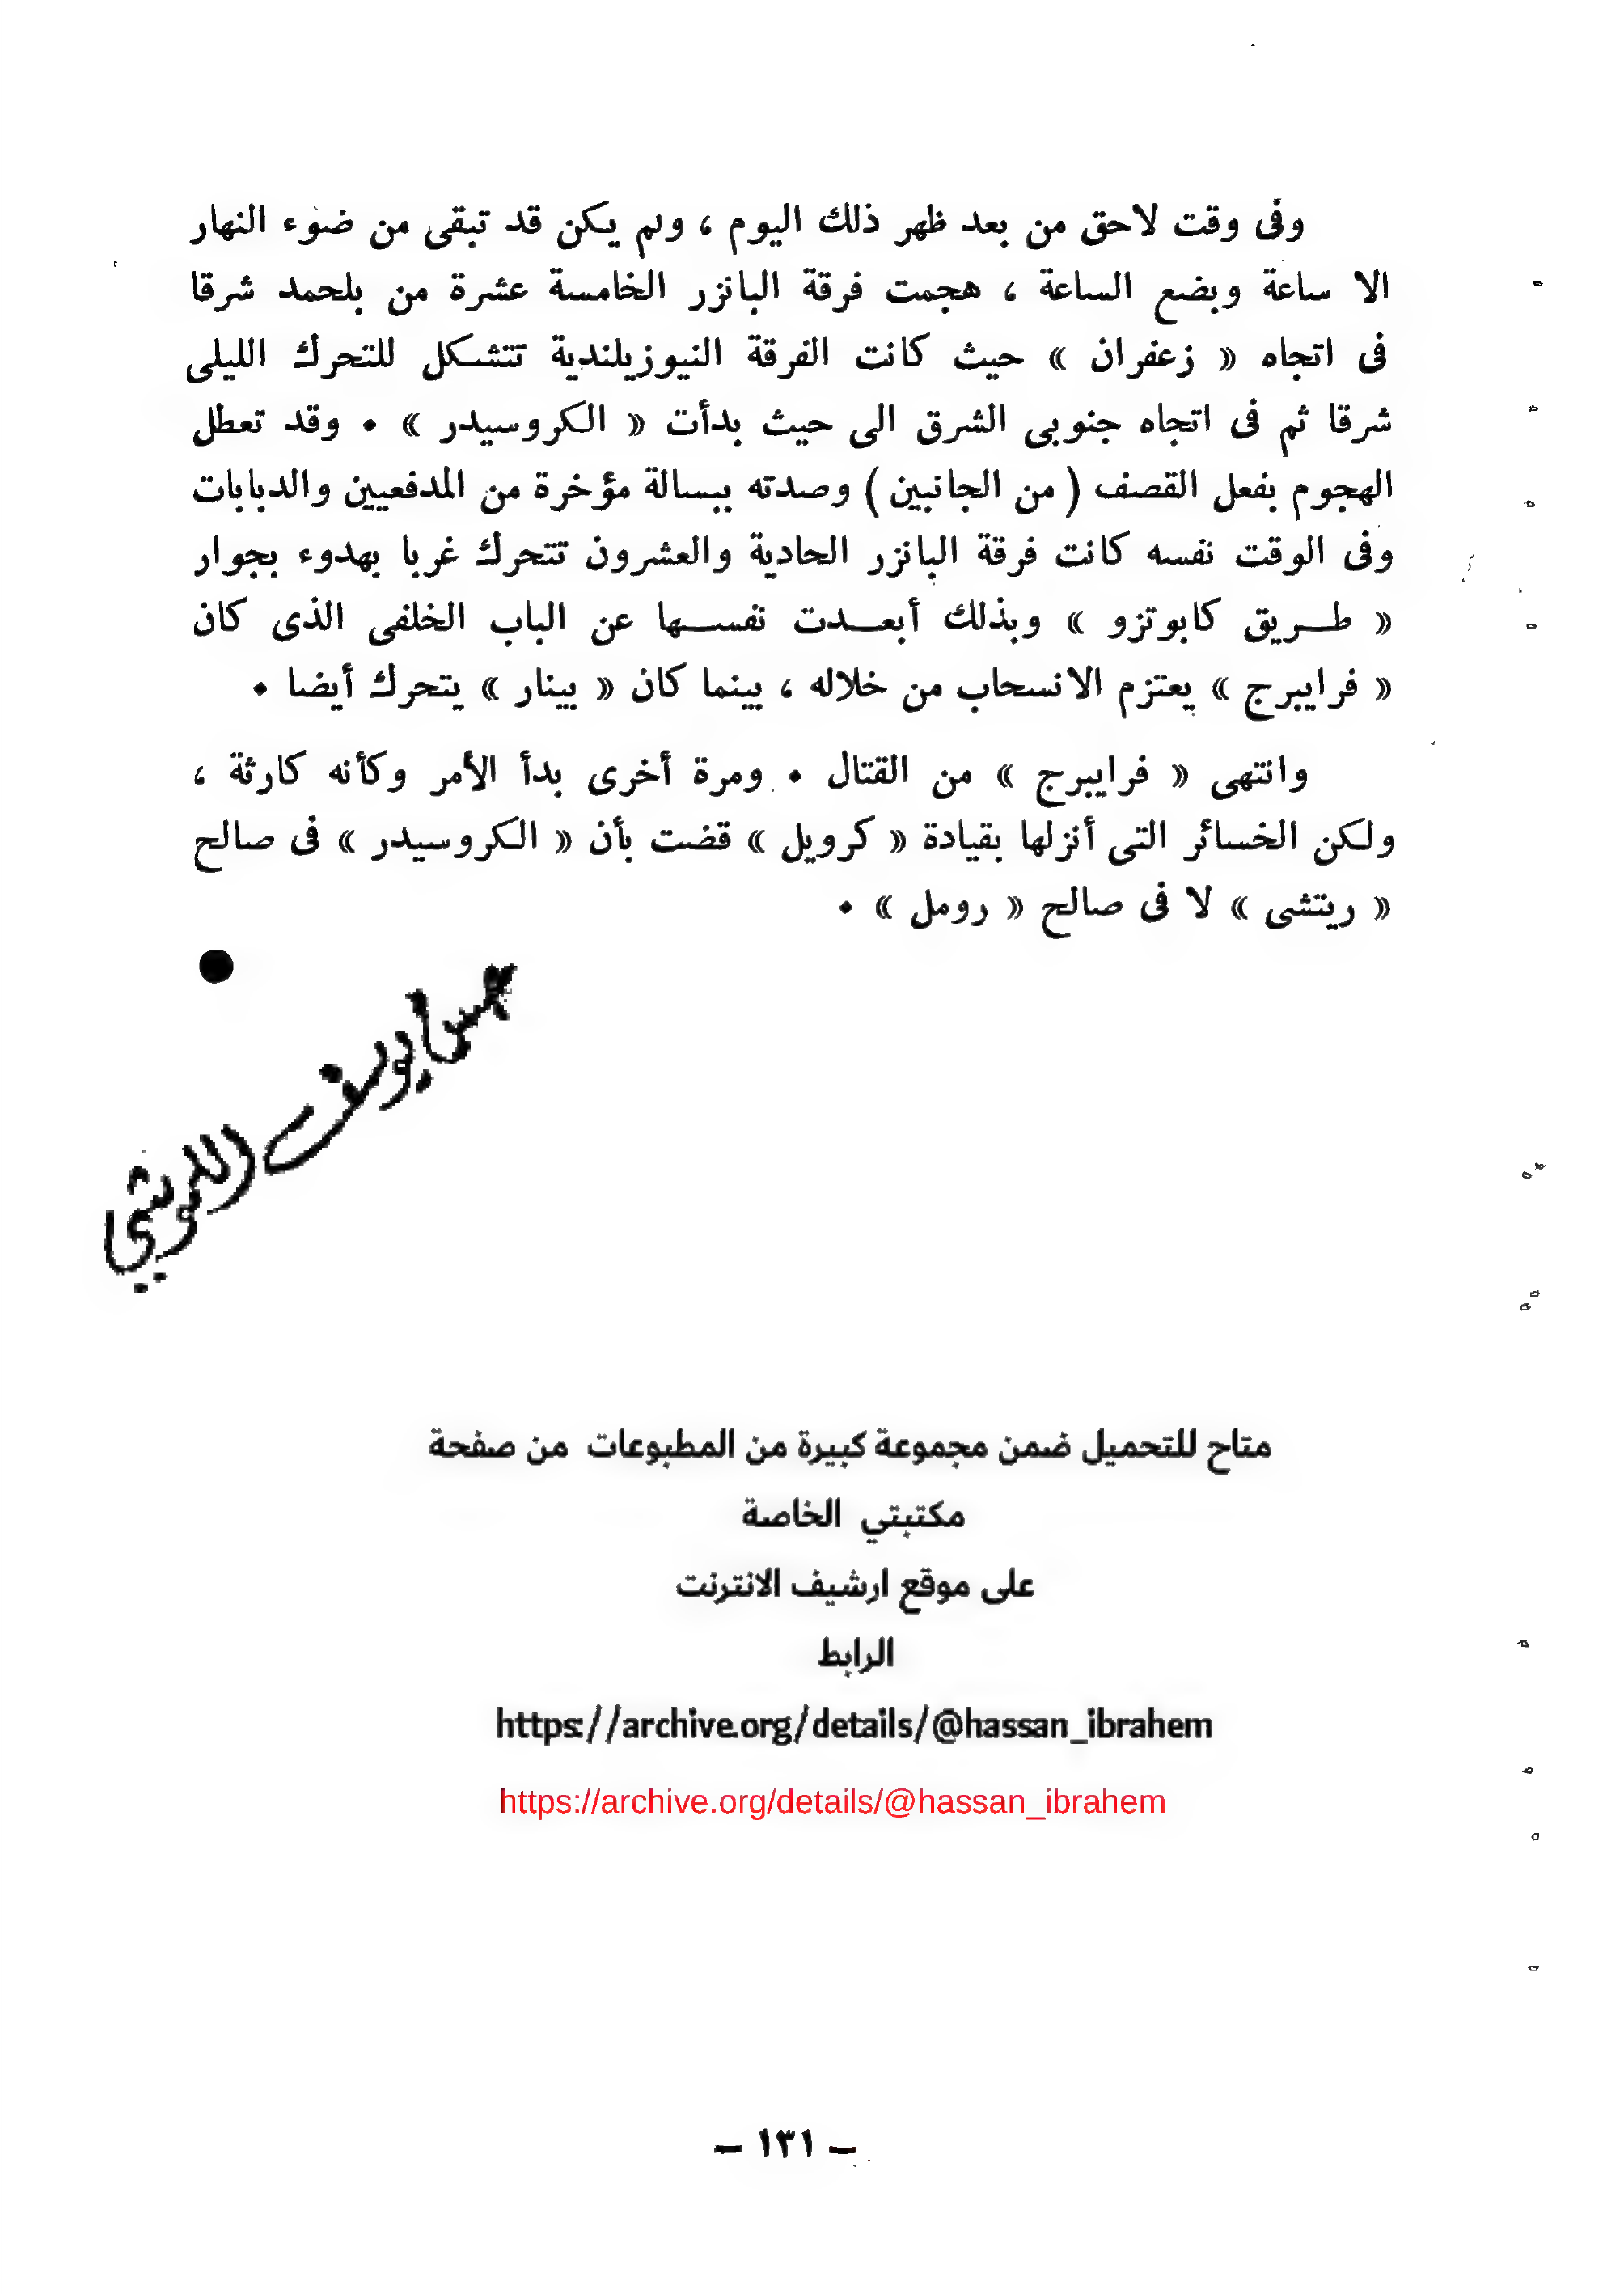 وفى وقت لاحق من بعد ظهر ذلك اليوم ، ولم يكن قد تبقى من ضوء النهار
الا ساعة وبضع الساعة ، هجمت فرقة البانزر الخامسة عشرة من بلحمد شرقا
فى اتجاه « زعفران » حيث كانت الفرقة النيوزيلندية تتشكل للتحرك الليلى
شرقا ثم فى اتجاه جنوبى الشرق الى حيث بدأت « الكروسيدر » • وقد تعطل
الهجوم بفعل القصف ( من الجانبين ) وصدته ببسالة مؤخرة من المدفعيين والدبابات
وفى الوقت نفسه كانت فرقة البانزر الحادية والعشرون تتحرك غربا بهدوء بجوار
« طريق كابوتزو » وبذلك أبعدت نفسها عن الباب الخلفى الذى كان
« فرايبرج » يعتزم الانسحاب من خلاله ، بينما كان « بينار » يتحرك أيضا •
وانتهى « فرايبرج » من القتال • ومرة أخرى بدأ الأمر وكأنه كارثة ،
ولكن الخسائر التى أنزلها بقيادة « كرويل » قضت بأن « الكروسيدر » فى صالح
« ريتشى » لا فى صالح « رومل » •
يوسف
متاح للتحميل ضمن مجموعة كبيرة من المطبوعات من صفحة
مكتبتي الخاصة
على موقع ارشيف الانترنت
الرابط
https://archive.org/details/@hassan_ibrahem
https://archive.org/details/@hassan_ibrahem
– ١٣١ –